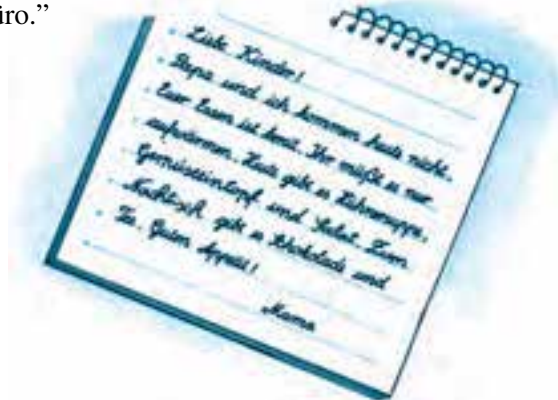 üro.”
Liebe Kinder!
Papa und ich kommen heute nicht.
Euer Essen ist  Ihr müßt es nur
aufwärmen. Heute gibt es Hühnersuppe,
Gemüseeintopf und Salat. Zum
Nachtisch gibt es Schokolade und
Tee. Guten Appetit!
Mama